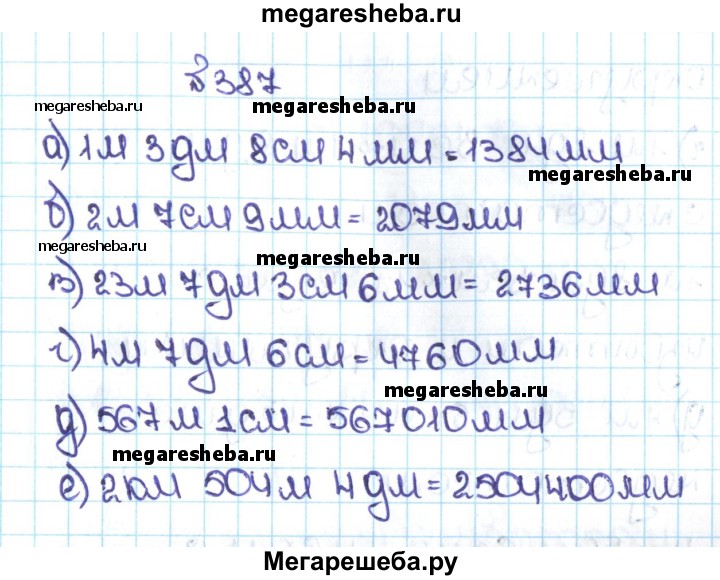 megaresheba.ru
№387
megaresheba.ru
megaresheba.ru
а) 1м 3дм 8см 4мм = 1384мм
megaresheba.ru
б) 2м 7см 9мм = 2079мм
megaresheba.ru
megaresheba.ru
в) 23м 7дм 3см 6мм = 2736мм
г) 4м 7дм 6см = 4760мм
megaresheba.ru
д) 567м 1см = 567010мм
megaresheba.ru
е) 2км 504м 4дм = 2504400мм
Мегарешеба.ру